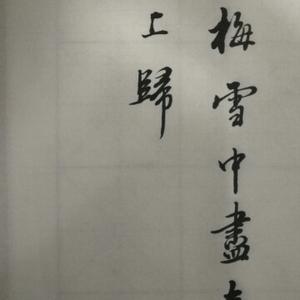 梅雪中盡
上歸